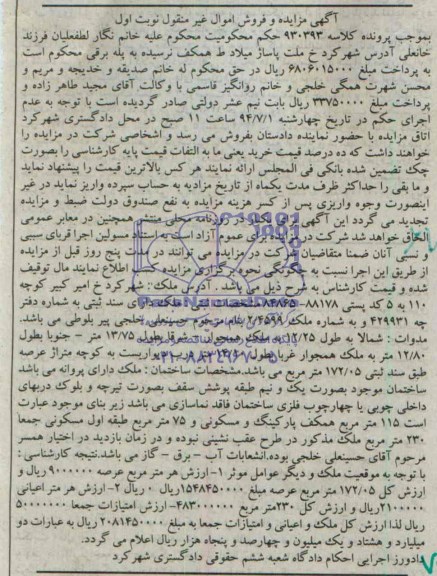 آگهی مزایده و فروش اموال غیر منقول نوبت اول
بموجب پرونده کلاسه ۹۳۰۳۹۳ حکم محکومیت محکوم علیه خانم نگار لطفعلیان فرزند
خانعلی آدرس شهرکرد خ ملت پاساژ میلاد ط همکف نرسیده به پله برقی محکوم است
به پرداخت مبلغ ۶۸۰۶۰۱۵۰۰۰ ریال در حق محکوم له خانم صدیقه و خدیجه و مریم و
محسن شهرت همگی خلجی و خانم روانگیز قاسمی با وکالت آقای مجید طاهر زاده و
پرداخت مبلغ ۳۳۷۵۰۰۰۰ ریال بابت نیم عشر دولتی صادر گردیده است با توجه به عدم
اجرای حکم در تاریخ چهارشنبه ۹۴/۷/۱ ساعت ۱۱ صبح در محل دادگستری شهرکرد
اتاق مزایده با حضور نماینده دادستان بفروش می رسد و اشخاصی شرکت در مزایده را
خواهند داشت که ده درصد قیمت خرید یعنی ما به التفات قیمت پایه کارشناسی را بصورت
چک تضمین شده بانکی فی المجلس ارائه نمایند هر کس بالاترین قیمت را پیشنهاد نماید
و ما بقی را حداکثر ظرف مدت یکماه از تاریخ مزادیه به حساب سپرده واریز نماید در غیر
اینصورت وجوه واریزی پس از کسر هزینه مزایده به نفع صندوق دولت ضبط و مزایده
تجدید می گردد این آگهی روزنامه محلی همچنین در معابر عمومی
الحاق خواهد شد شرکت در مزایده برای عموم آزاد است به استثناء مسولین اجرا قربای سببی
و نسبی آنان ضمنا متقاضیان شرکت در مزایده می توانند در مدت پنج روز قبل از مزایده
از طریق این اجرا نسبت به چگونگی نحوه برگزاری مزایده کسب اطلاع نمایند مال توقیف
شده و قیمت کارشناس به شرح ذیل می باشد. آدرس ملک: شهرکرد خ امیر کبیر کوچه
۱۱۰ به ۵ کد پستی ملک دارای سند ثبتی به شماره دفتر
چه ۴۲۹۹۳۱ و به شماره ملک بنام مرحوم حسینعلی خلجی پیر بلوطی می باشد.
مدوات: شمالا به طول ۱۲/۲۵ به ملک همجوار شرقا بطول ۱۳/۷۵ متر – جنوبا بطول
۱۲/۸۰ متر به ملک همجوار غربا بطول متر دیواریست به کوچه متراژ عرصه
طبق سند ثبتی ۱۷۲/۰۵ متر مربع می باشد.مشخصات ساختمان: ملک دارای پروانه می باشد
ساختمان موجود بصورت یک و نیم طبقه پوشش سقف بصورت تیرچه و بلوک دربهای
داخلی چوبی با چهارچوب فلزی ساختمان فاقد نماسازی می باشد زیر بنای موجود عبارت
است ۱۱۵ متر مربع همکف پارکینگ و مسکونی و ۷۵ متر مربع طبقه اول مسکونی جمعا
۲۳۰ متر مربع ملک مذکور در طرح عقب نشینی نبوده و در زمان بازدید در اختیار همسر
مرحوم آقای حسینعلی خلجی بوده.انشعابات آب – برق – گاز می باشد.نتیجه کارشناسی:
با توجه به موقعیت ملک و دیگر عوامل موثر ۱- ارزش هر متر مربع عرصه ۹۰۰۰۰۰۰ ریال و
ارزش کل ۱۷۲/۰۵ متر مربع عرصه مبلغ ۱۵۴۸۴۵۰۰۰۰ ریال ۲- ارزش هر متر اعیانی
۲۱۰۰۰۰۰ ریال و ارزش کل ۲۳۰ متر مربع ۴۸۳۰۰۰۰۰۰- ارزش امتیازات جمعا ۵۰۰۰۰۰۰۰
ریال لذا ارزش کل ملک و اعیانی و امتیازات جمعا به مبلغ ۲۰۸۱۴۵۰۰۰۰ ریال به عبارات دو
میلیارد و هشتاد و یک میلیون و چهارصد و پنجاه هزار ریال اعلام می گردد.
دادورز اجرایی احکام دادگاه شعبه ششم حقوقی دادگستری شهرکرد